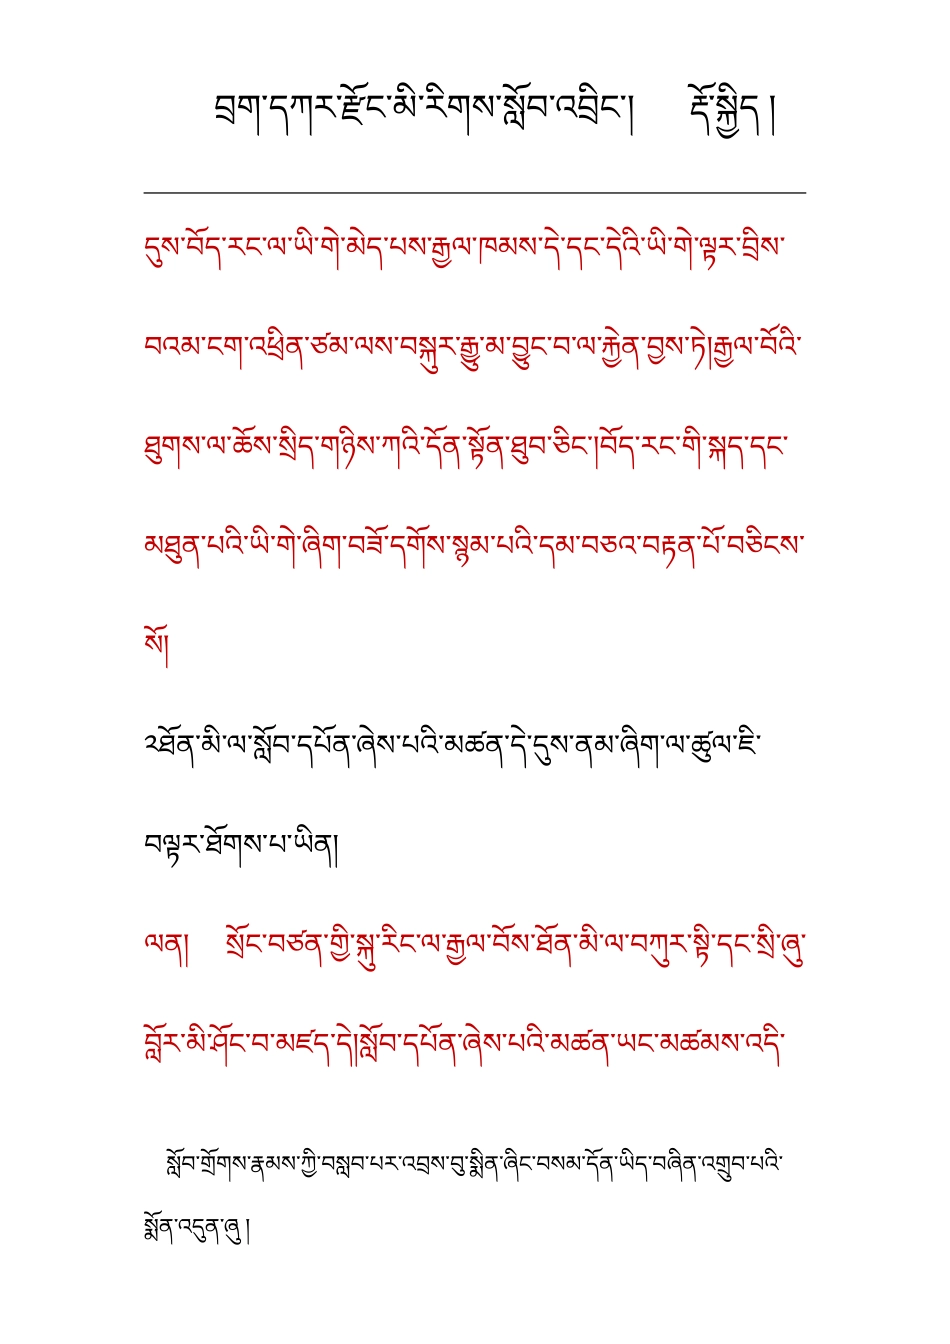 བྲག་དཀར་རྫོང་མི་རིགས་སློབ་འབྲིང་། རྡོ་སྐྱིད །
དུས་བོད་རང་ལ་ཡི་གེ་མེད་པས་རྒྱལ་ཁམས་དེ་དང་དེའི་ཡི་གེ་ལྟར་བྲིས་
བའམ་ངག་འཕྲིན་ཙམ་ལས་བསྐུར་རྒྱུ་མ་བྱུང་བ་ལ་རྐྱེན་བྱས་ཏེ།རྒྱལ་བོའི་
ཐུགས་ལ་ཆོས་སྲིད་གཉིས་ཀའི་དོན་སྟོན་ཐུབ་ཅིང་།བོད་རང་གི་སྐད་དང་
མཐུན་པའི་ཡི་གེ་ཞིག་བཟོ་དགོས་སྙམ་པའི་དམ་བཅའ་བརྟན་པོ་བཅིངས་
སོ།
༢ཐོན་མི་ལ་སློབ་དཔོན་ཞེས་པའི་མཚན་དེ་དུས་ནམ་ཞིག་ལ་ཚུལ་ཇི་
བལྟར་ཐོགས་པ་ཡིན།
ལན། སྲོང་བཙན་གྱི་སྐུ་རིང་ལ་རྒྱལ་བོས་ཐོན་མི་ལ་བཀུར་སྟི་དང་སྲི་ཞུ་
བློར་མི་ཤོང་བ་མཛད་དེ།སློབ་དཔོན་ཞེས་པའི་མཚན་ཡང་མཚམས་འདི་
སློབ་གྲོགས་རྣམས་ཀྱི་བསླབ་པར་འབྲས་བུ་སྨིན་ཞིང་བསམ་དོན་ཡིད་བཞིན་འགྲུབ་པའི་
སྨོན་འདུན་ཞུ །